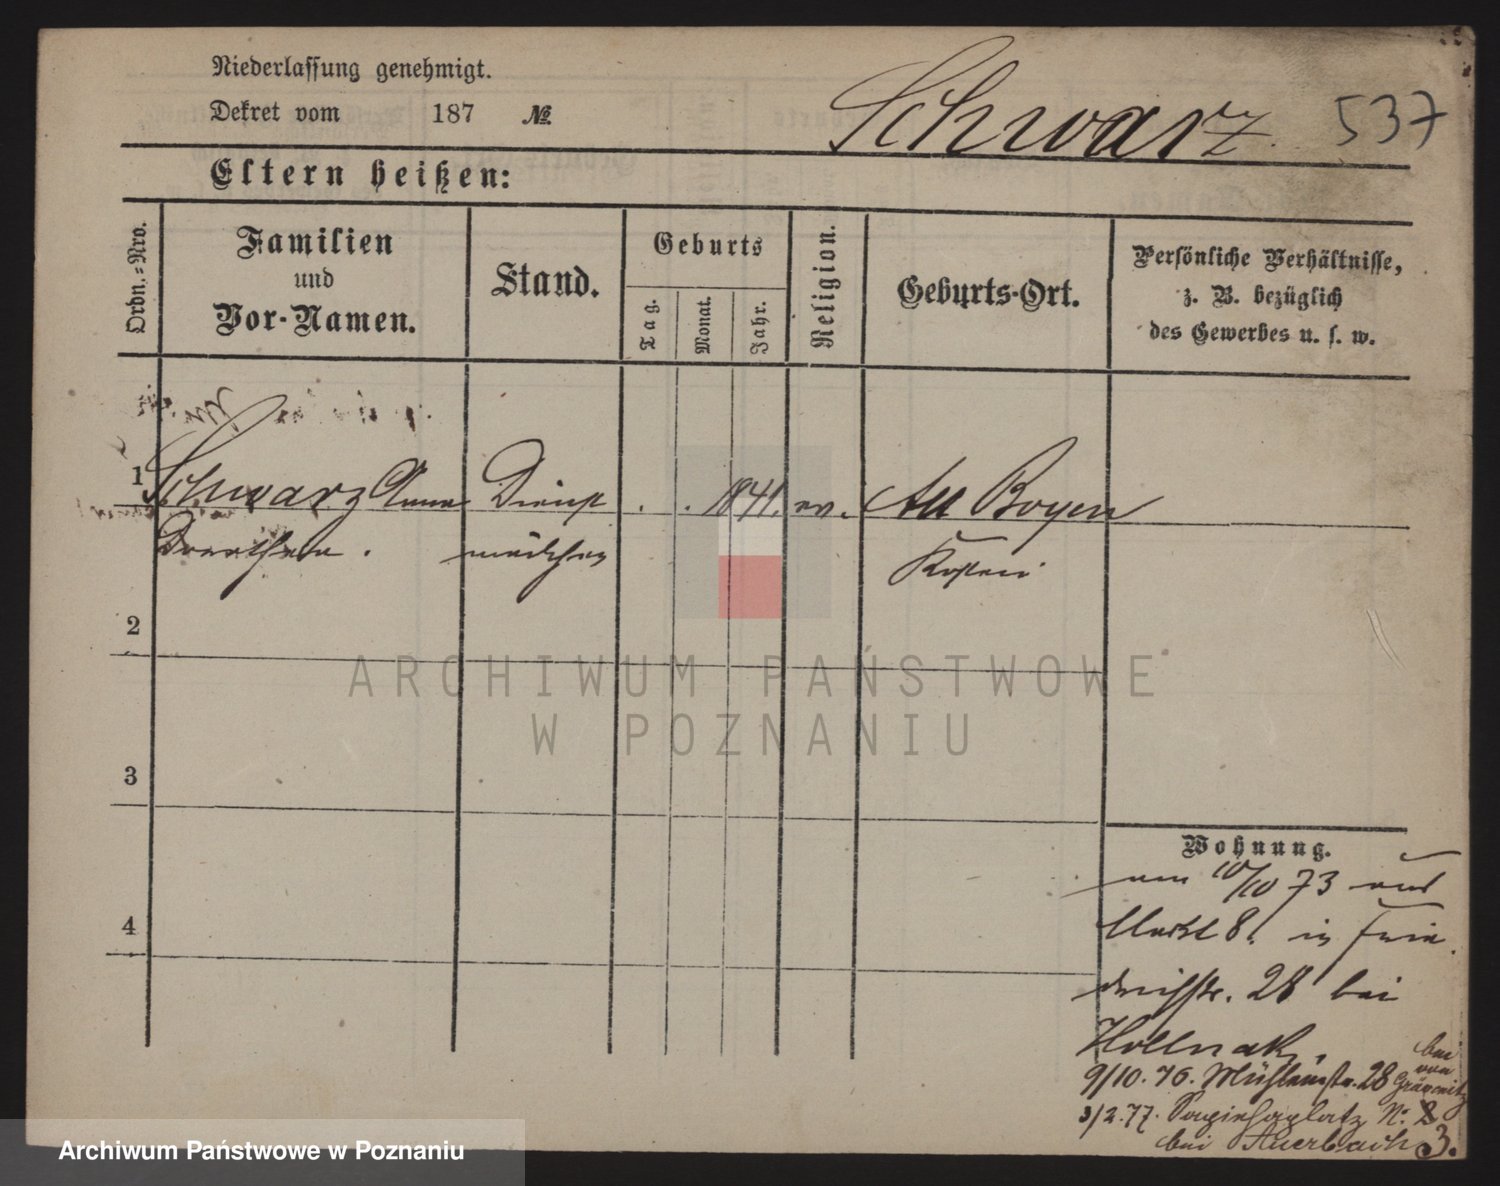 Niederlassung genehmigt.
Dekret vom 187 №
Schwarz 537
Eltern heißen:
Ordn.-Nro.
Familien
und
Vor-Namen.
Stand.
Geburts
Tag.
Monat.
Jahr.
Religion.
Geburts-Ort.
Persönliche Verhältnisse,
z. B. bezüglich
des Gewerbes u. s. w.
1 Schwarz Anna Dienst . . 1841. ev. Alt Boyen
Dorothea. mädchen Kosten
2
3
4
ARCHIWUM PAŃSTWOWE
W POZNANIU
Wohnung.
10/10 73 aus
Markt 8. in Frie
drichstr. 28 bei
Hollnack.
9/10. 76. Mühlenstr. 28 bei von Grävenitz
3/2. 77. Sapiehaplatz N: 3.
bei Auerbach
Archiwum Państwowe w Poznaniu